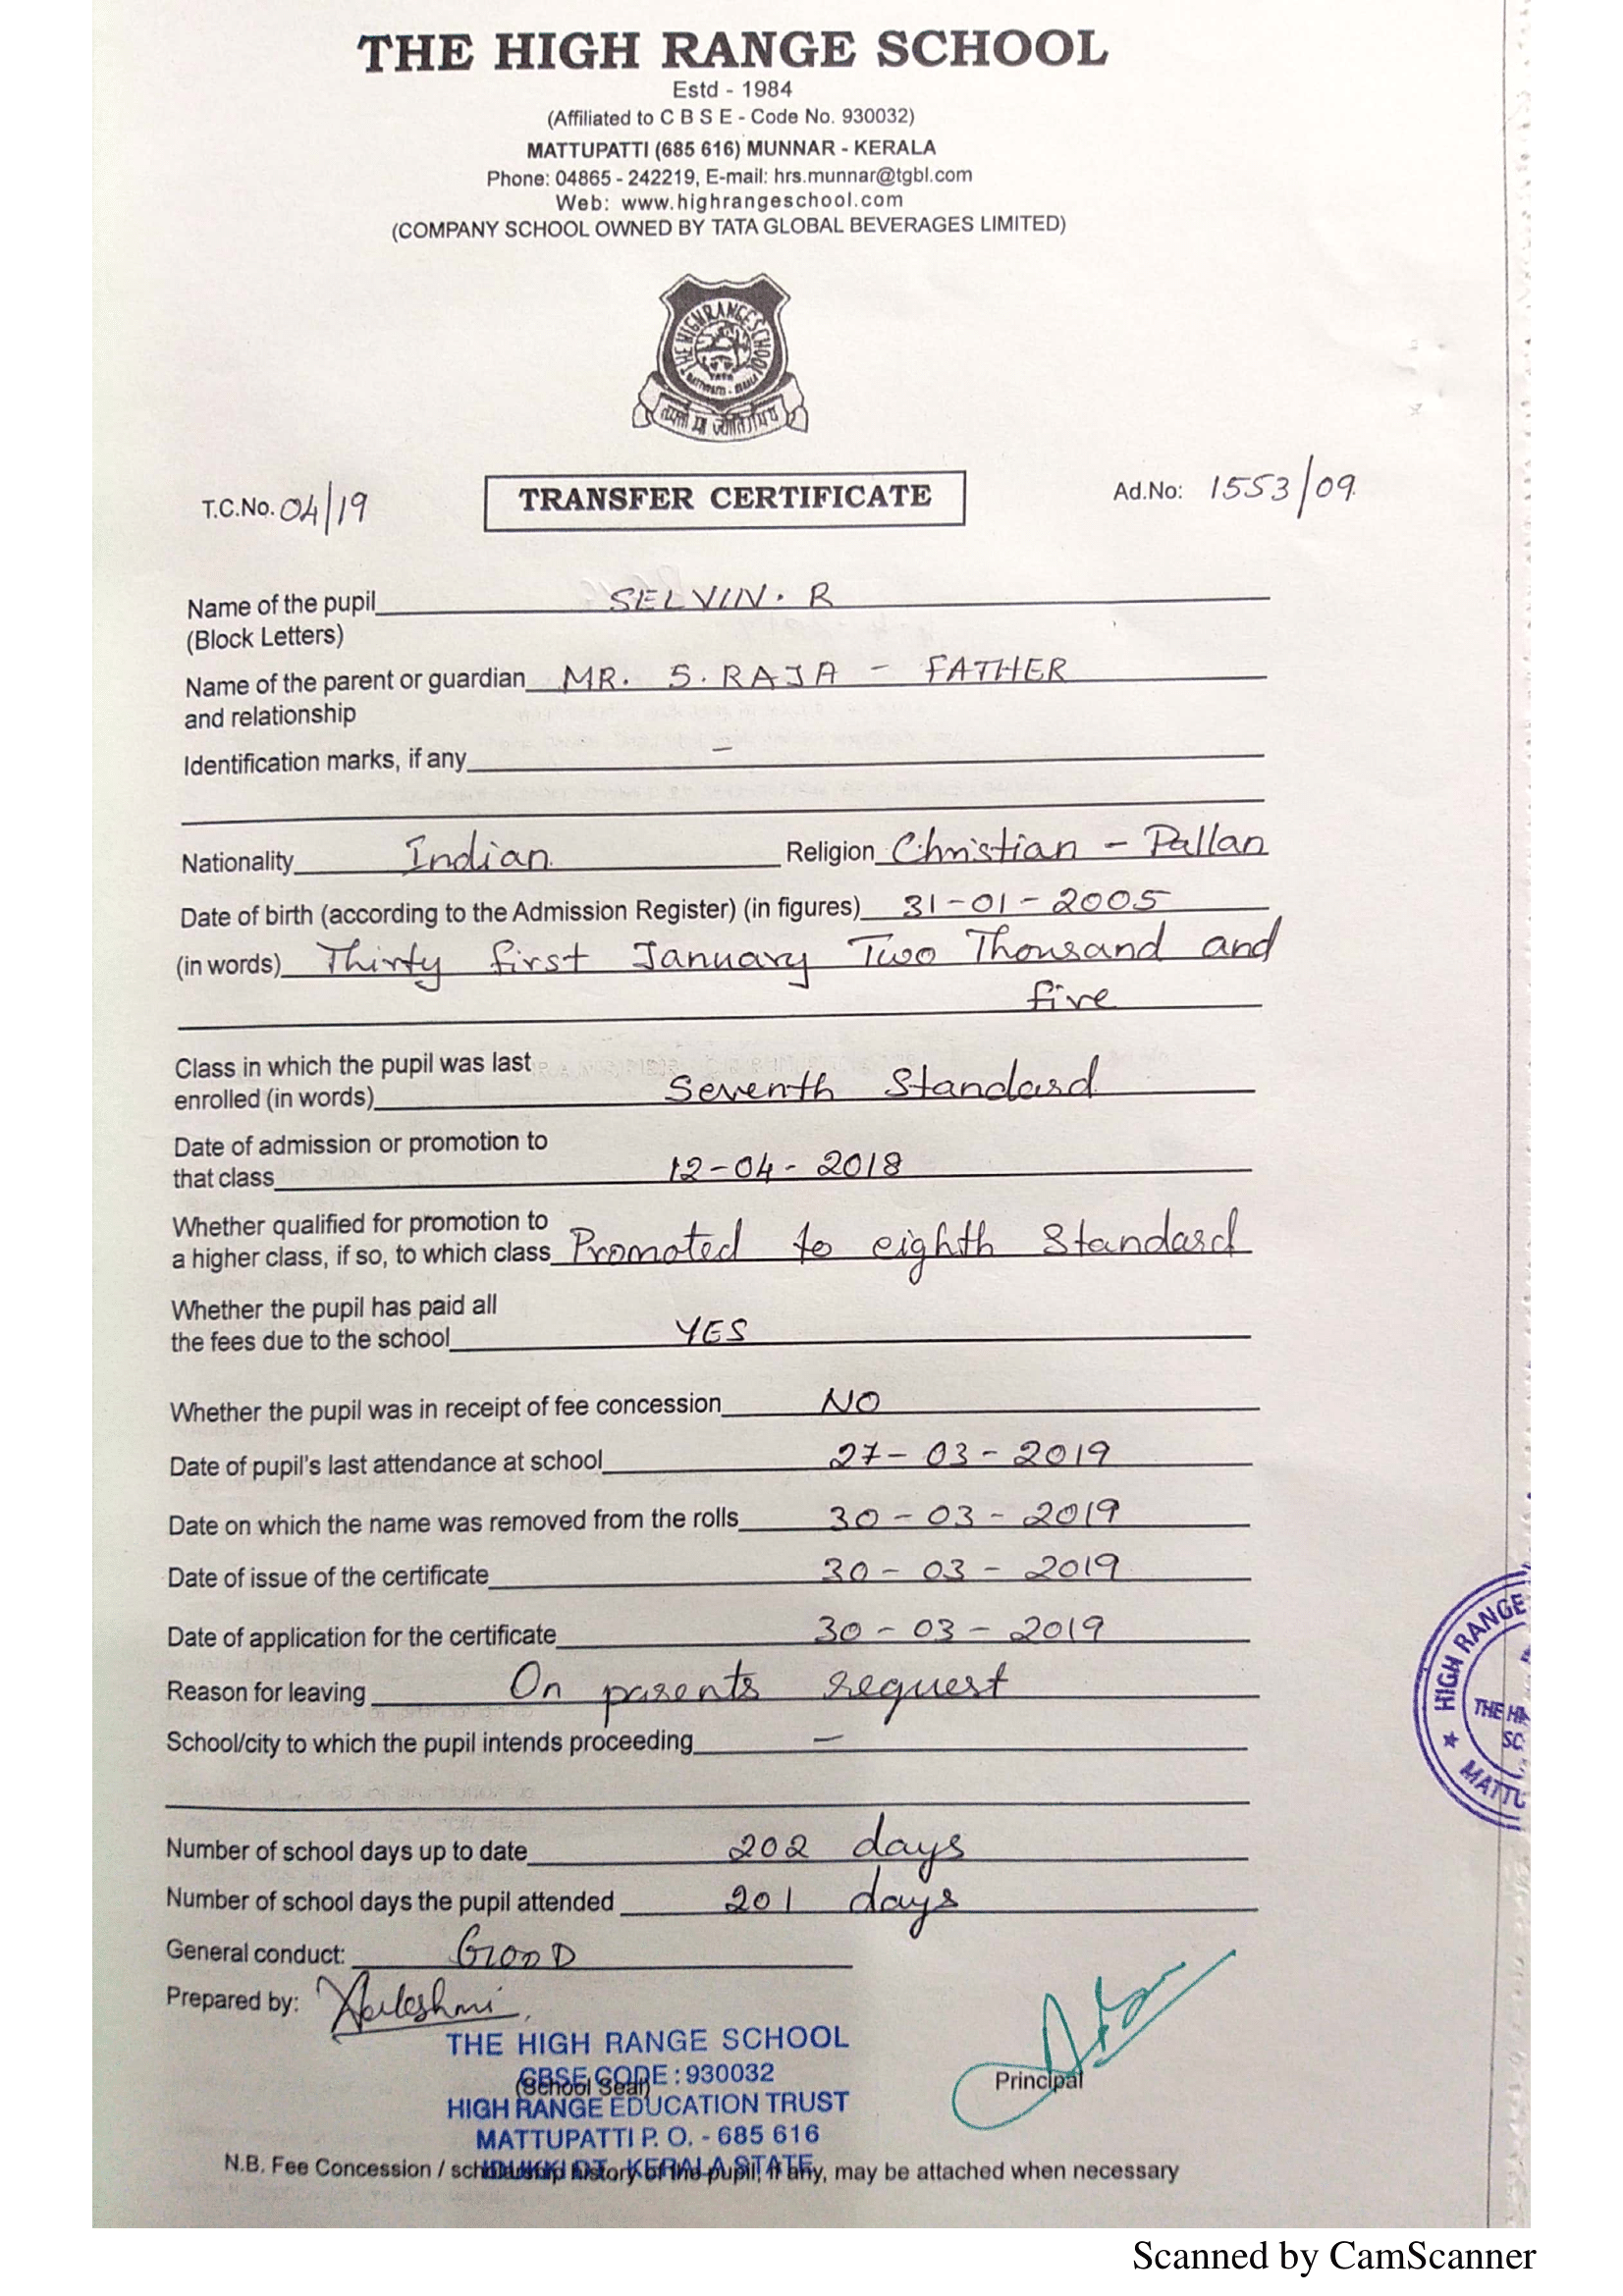 THE HIGH RANGE SCHOOL
Estd - 1984
(Affiliated to C B S E - Code No. 930032)
MATTUPATTI (685 616) MUNNAR - KERALA
Phone: 04865 - 242219, E-mail: hrs.munnar@tgbl.com
Web: www.highrangeschool.com
(COMPANY SCHOOL OWNED BY TATA GLOBAL BEVERAGES LIMITED)
THE HIGH RANGE SCHOOL
तमसो मा ज्योतिर्गमय
T.C.No. 04/19 TRANSFER CERTIFICATE Ad.No: 1553/09.
Name of the pupil SELVIN. R
(Block Letters)
Name of the parent or guardian MR. S. RAJA - FATHER
and relationship
Identification marks, if any -
Nationality Indian Religion Christian - Pallan
Date of birth (according to the Admission Register) (in figures) 31-01-2005
(in words) Thirty first January Two Thousand and
five
Class in which the pupil was last
enrolled (in words) Seventh Standard
Date of admission or promotion to
that class 12-04-2018
Whether qualified for promotion to
a higher class, if so, to which class Promoted to eighth Standard
Whether the pupil has paid all
the fees due to the school YES
Whether the pupil was in receipt of fee concession NO
Date of pupil's last attendance at school 27-03-2019
Date on which the name was removed from the rolls 30-03-2019
Date of issue of the certificate 30-03-2019
Date of application for the certificate 30-03-2019
Reason for leaving On parents request
School/city to which the pupil intends proceeding -
Number of school days up to date 202 days
Number of school days the pupil attended 201 days
General conduct: GOOD
Prepared by:
THE HIGH RANGE SCHOOL
CBSE CODE : 930032
(School Seal)
Principal
HIGH RANGE EDUCATION TRUST
MATTUPATTI P. O. - 685 616
IDUKKI DT. KERALA STATE
N.B. Fee Concession / scholarship history of the pupil, if any, may be attached when necessary
HIGH RANGE
THE
Scanned by CamScanner